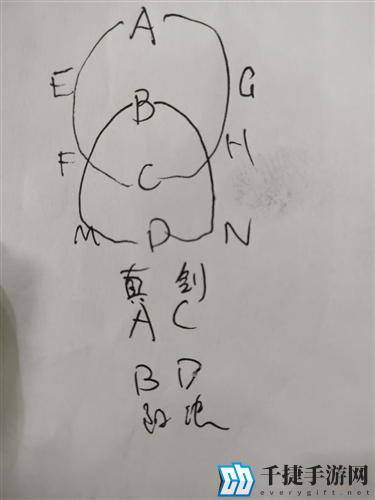 A
E G
B
F H
C
M D N
真 剑
A C
B D
千捷手游网
www.everygift.net